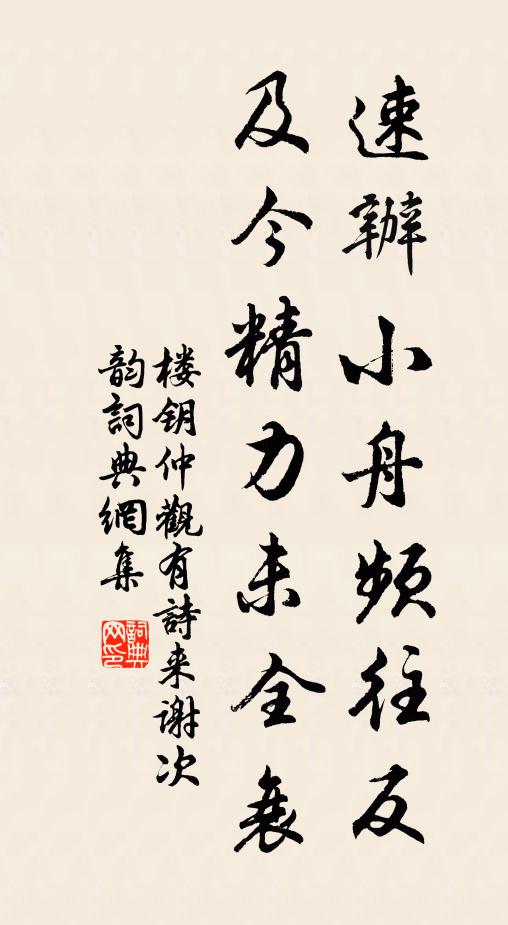 速辦小舟頻往反
及今精力未全衰
楼钥仲觀有詩来謝次
韵詞典網集
詞典网印